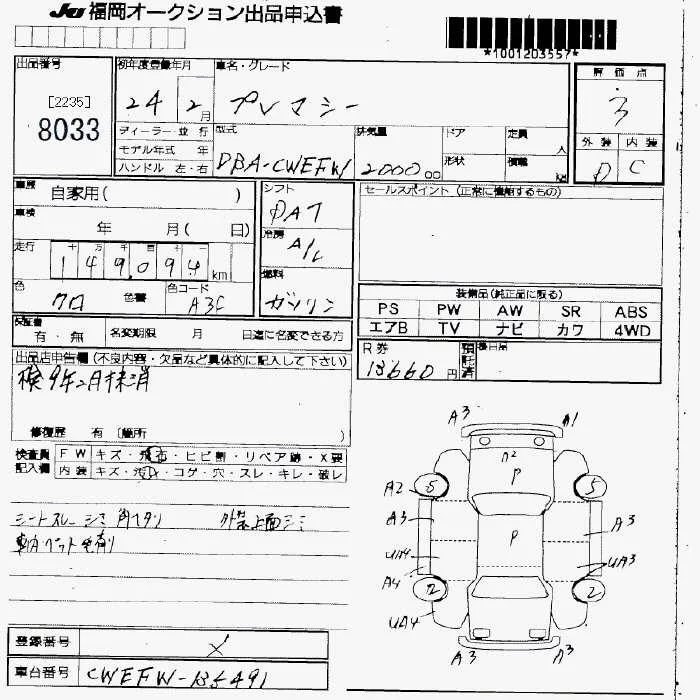 JU 福岡オークション出品申込書
*1001203557*
出品番号
[2235]
8033
初年度登録年月
24 2月
車名・グレード
プレマシー
評価点
3
外装 内装
D C
ディーラー 並行
モデル年式 年
ハンドル 左・右
型式
DBA-CWEFW
排気量
2000 cc
ドア
形状
定員
人
積載
kg
車歴
自家用( )
車検
年 月( 日)
走行
十 万 千 百 十 一
149,094 km
色
クロ 色替
色コード
A3F
シフト
DAT
冷房
A/C
燃料
ガソリン
セールスポイント (正常に機能するもの)
装備品(純正品に限る)
PS PW AW SR ABS
エアB TV ナビ カワ 4WD
保証書
有・無
名変期限 月 日迄に名変できる方
R券
13660円
預託済
後日品
出品店申告欄 (不良内容・欠品など具体的に記入して下さい)
検9年2月抹消
修復歴 有 〔箇所 )
検査員
記入欄
FW キズ・飛石・ヒビ割・リペア跡・X要
内装 キズ・コゲ・穴・スレ・キレ・破レ
シートスレ シミ
外装上面シミ
A3 A1
A2 P
5 5
A2
A3 A3
P
UA4 UA3
A4
2 2
UA4
A3 A3
登録番号
車台番号
CWEFW-135491